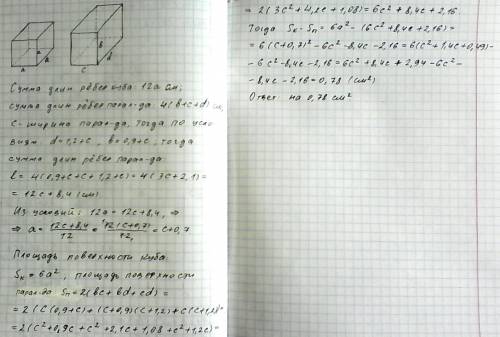 a
a
a
b
c
d
Сумма длин рёбер куба: 12a см;
сумма длин рёбер парал-да: 4(b+c+d) см,
c - ширина парал-да, тогда по усло
виям d=1,2+c, b=0,9+c, тогда
сумма длин рёбер парал-да:
l = 4(0,9+c+c+1,2+c) = 4(3c+2,1) =
= 12c + 8,4 (см)
Из условий: 12a = 12c+8,4, ⇒
⇒ a = (12c+8,4)/12 = 12(c+0,7)/12 = c+0,7
Площадь поверхности куба:
Sк = 6a², площадь поверхности
парал-да: Sп = 2(bc+bd+cd) =
= 2(c(0,9+c)+(c+0,9)(c+1,2)+c(c+1,2)) =
= 2(c²+0,9c+c²+2,1c+1,08+c²+1,2c) =
= 2(3c²+4,2c+1,08) = 6c²+8,4c+2,16.
Тогда Sк-Sп = 6a²-(6c²+8,4c+2,16) =
= 6(c+0,7)²-6c²-8,4c-2,16 = 6(c²+1,4c+0,49)-
-6c²-8,4c-2,16 = 6c²+8,4c+2,94-6c²-
-8,4c-2,16 = 0,78 (см²)
Ответ: на 0,78 см²